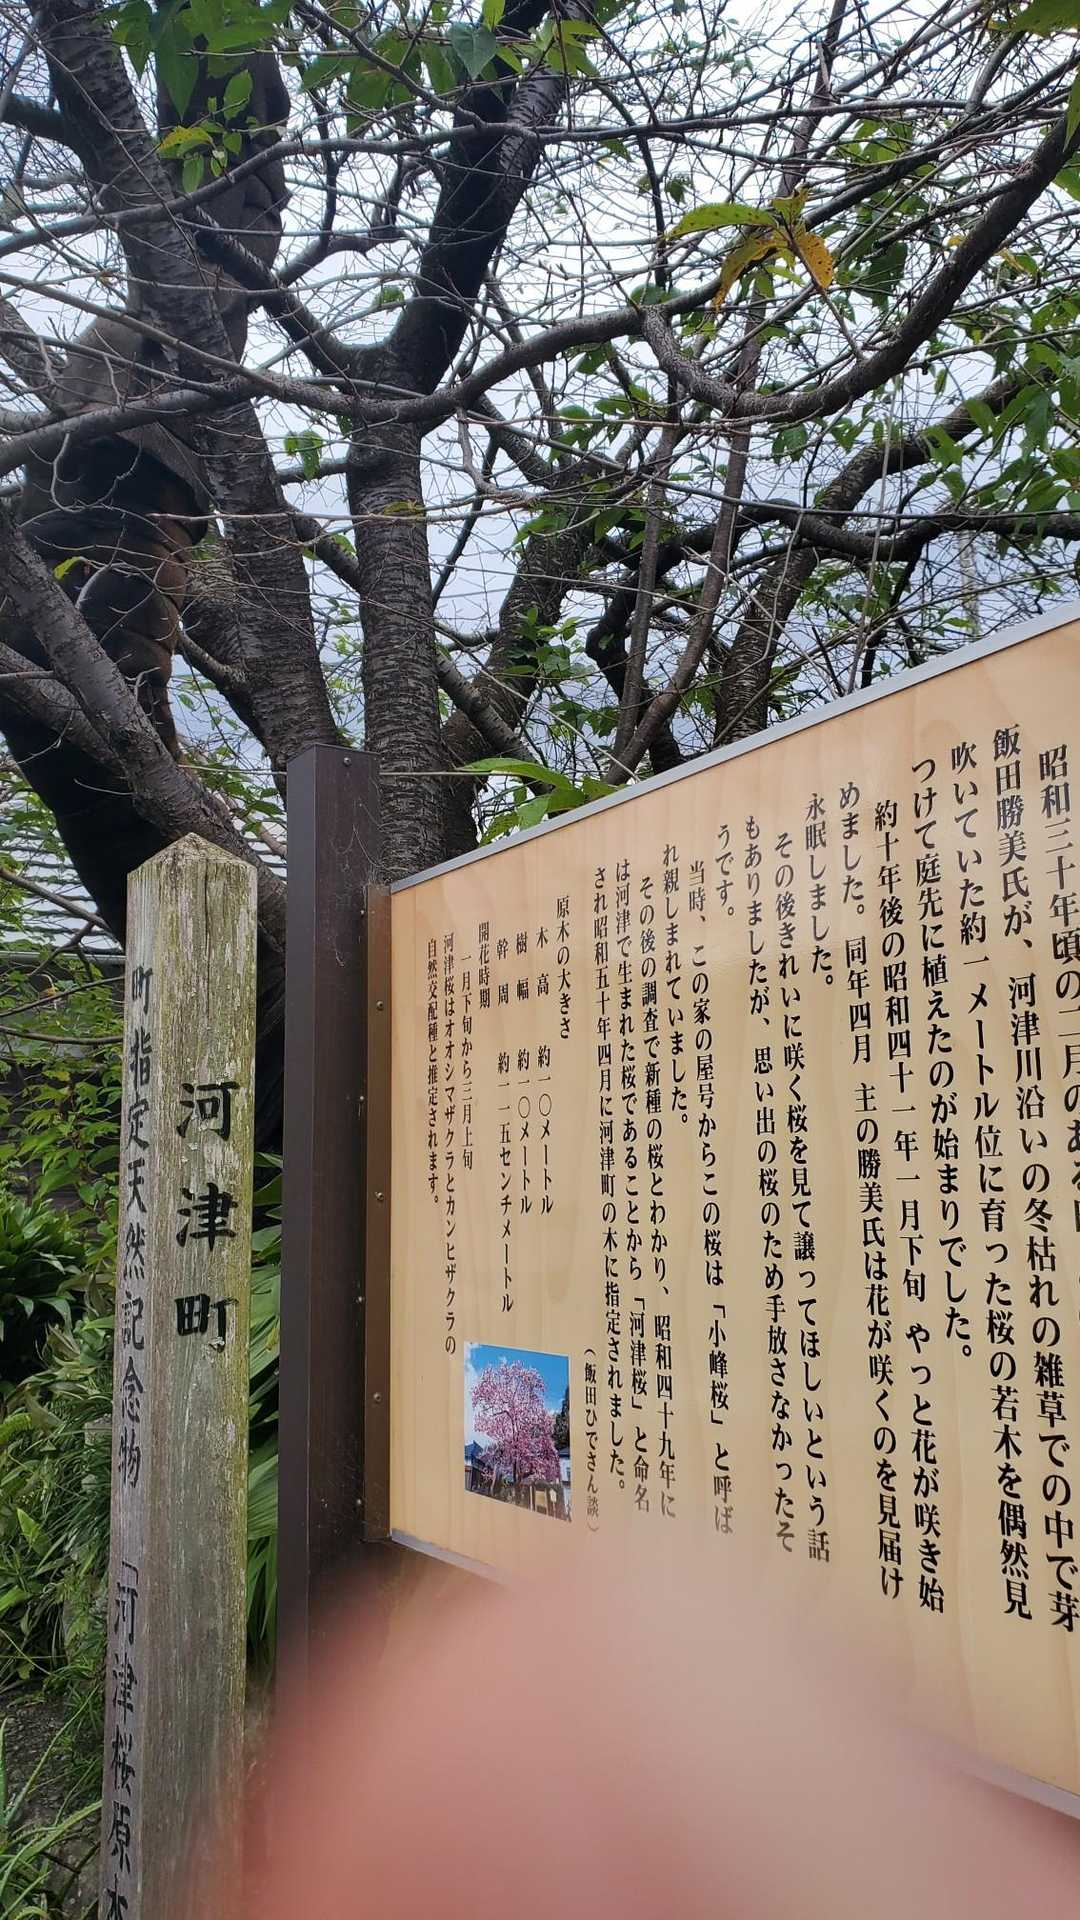 昭和三十年頃の二月のある
飯田勝美氏が、河津川沿いの冬枯れの雑草での中で芽
吹いていた約一メートル位に育った桜の若木を偶然見
つけて庭先に植えたのが始まりでした。
約十年後の昭和四十一年一月下旬 やっと花が咲き始
めました。同年四月 主の勝美氏は花が咲くのを見届け
永眠しました。
その後きれいに咲く桜を見て譲ってほしいという話
もありましたが、思い出の桜のため手放さなかったそ
うです。
当時、この家の屋号からこの桜は「小峰桜」と呼ば
れ親しまれていました。
その後の調査で新種の桜とわかり、昭和四十九年に
は河津で生まれた桜であることから「河津桜」と命名
され昭和五十年四月に河津町の木に指定されました。
(飯田ひでさん談)
原木の大きさ
木 高 約一〇メートル
樹 幅 約一〇メートル
幹 周 約一一五センチメートル
開花時期
一月下旬から三月上旬
河津桜はオオシマザクラとカンヒザクラの
自然交配種と推定されます。
河津町
町指定天然記念物 「河津桜原木